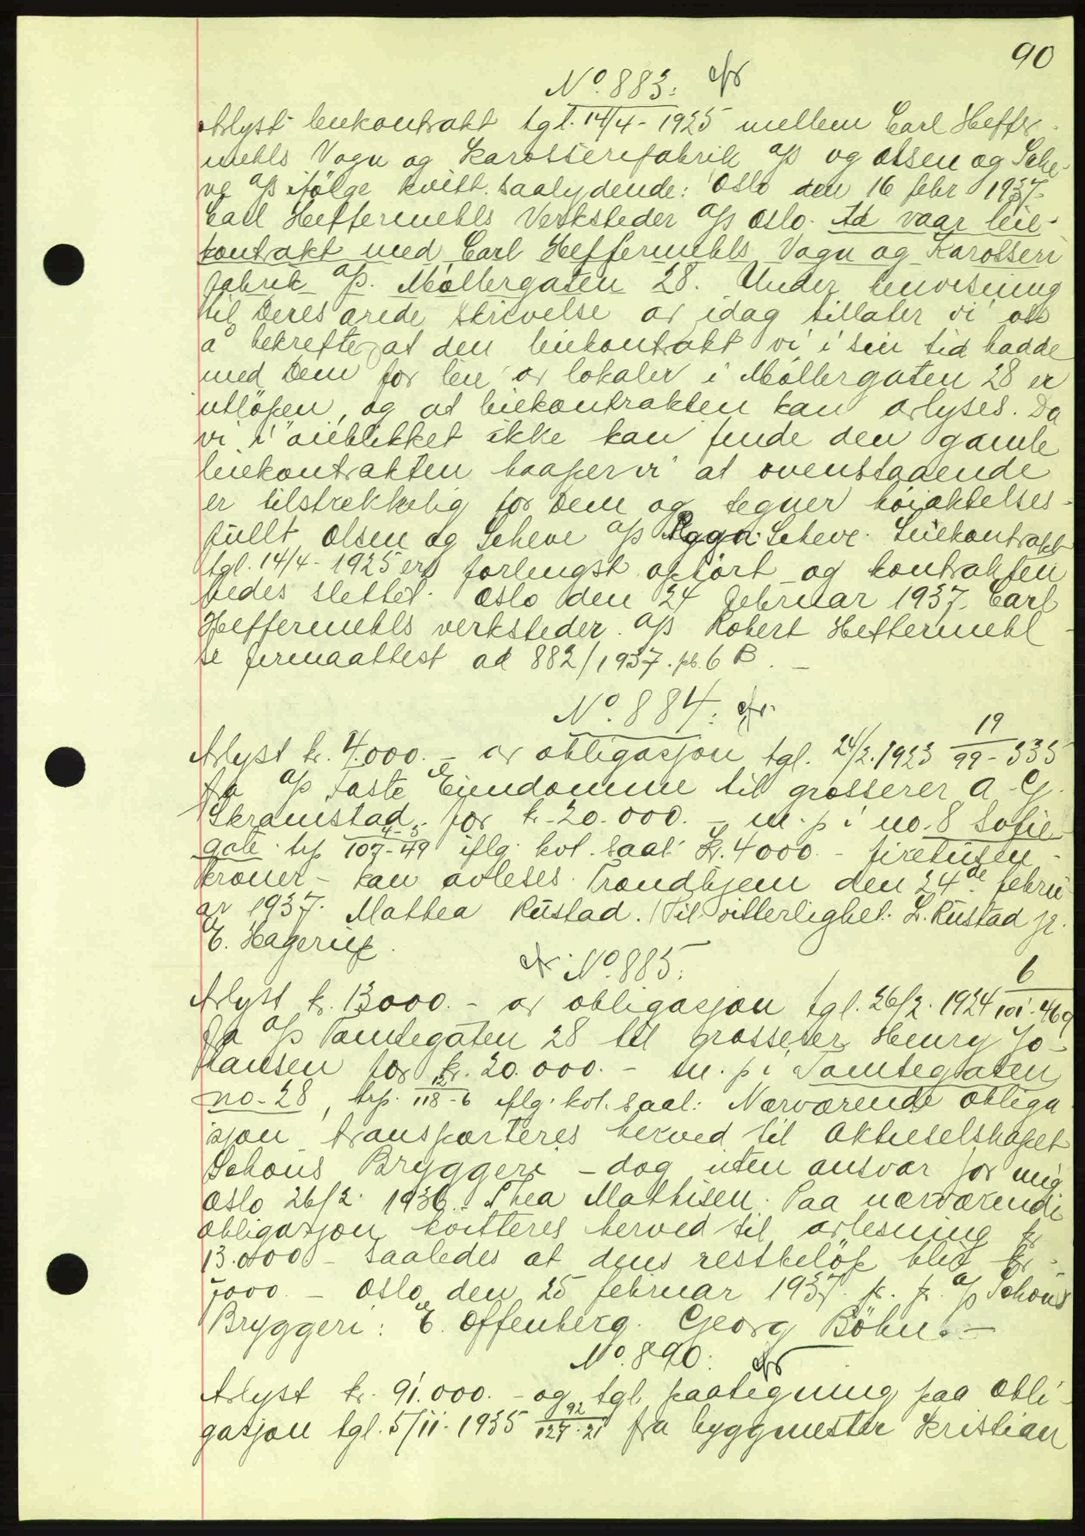 90
No. 883:
Avlyst leiekontrakt tgl. 14/4-1925 mellem Carl Heffer-
mehls Vogn og Karosserifabrik a/s og Olsen og Sche-
ve a/s ifølge kvitt. saalydende: Oslo den 16 febr 1937.
Carl Heffermehls Verksteder a/s Oslo. Ad vaar leie-
kontrakt med Carl Heffermehls Vogn og Karosseri
fabrik a/s. Møllergaten 28. Under henvisning
til Deres ærede skrivelse av idag tillater vi oss
å bekrefte, at den leiekontrakt vi i sin tid hadde
med Dem for leie av lokaler i Møllergaten 28 er
utløpen, og at leiekontrakten kan avlyses. Da
vi i øieblikket ikke kan finde den gamle
leiekontrakten haaper vi at ovenstaaende
er tilstrekkelig for Dem og tegner høiaktelses-
fullt Olsen og Scheve a/s Aaga Scheve. Leiekontrakt
tgl. 14/4-1925 er forlengst ophørt og kontrakten
bedes slettet. Oslo den 24 februar 1937. Carl
Heffermehls verksteder a/s Robert Heffermehl -
se firmaattest ad 882/1937. pk. 6 B. -
No. 884:
Avlyst kr. 4.000.- av obligasjon tgl. 24/2.1923 19/99-335
fra a/s Faste Eiendomme til grosserer A. G.
Skramstad for kr. 20.000.- m. p i no. 8 Sofie-
gate trp 4-5/107-49 iflg. kvt. saal: Kr. 4000.- firetusen-
kroner - kan avleses. Trondhjem den 24de febru
ar 1937. Mathea Rustad. Til vitterlighet. L. Rustad jr.
E. Hagerup.
No. 885:
Avlyst kr. 13000.- av obligasjon tgl. 26/2.1924 6/101-469
fra a/s Tomtegaten 28 til grosserer Henry Jo-
hansen for kr. 20.000.- m. p i Tomtegaten
no. 28, trp. 12/118-6 iflg. kvt. saal: Nærværende obliga-
sjon transporteres herved til Aktieselskapet
Schous Bryggeri - dog uten ansvar for mig
Oslo 26/2. 1936. Thea Mathisen. Paa nærværende
obligasjon kvitteres herved til avlesning kr
13.000 - saaledes at dens restbeløp blir kr -
7000.- Oslo den 25 februar 1937. p. p. a/s Schous
Bryggeri: E. Offenberg. Georg Böhn. -
No. 890:
Avlyst kr. 91.000.- og tgl. paategning paa obli-
gasjon tgl. 5/11.1935 92/127-21 fra byggmester Kristian